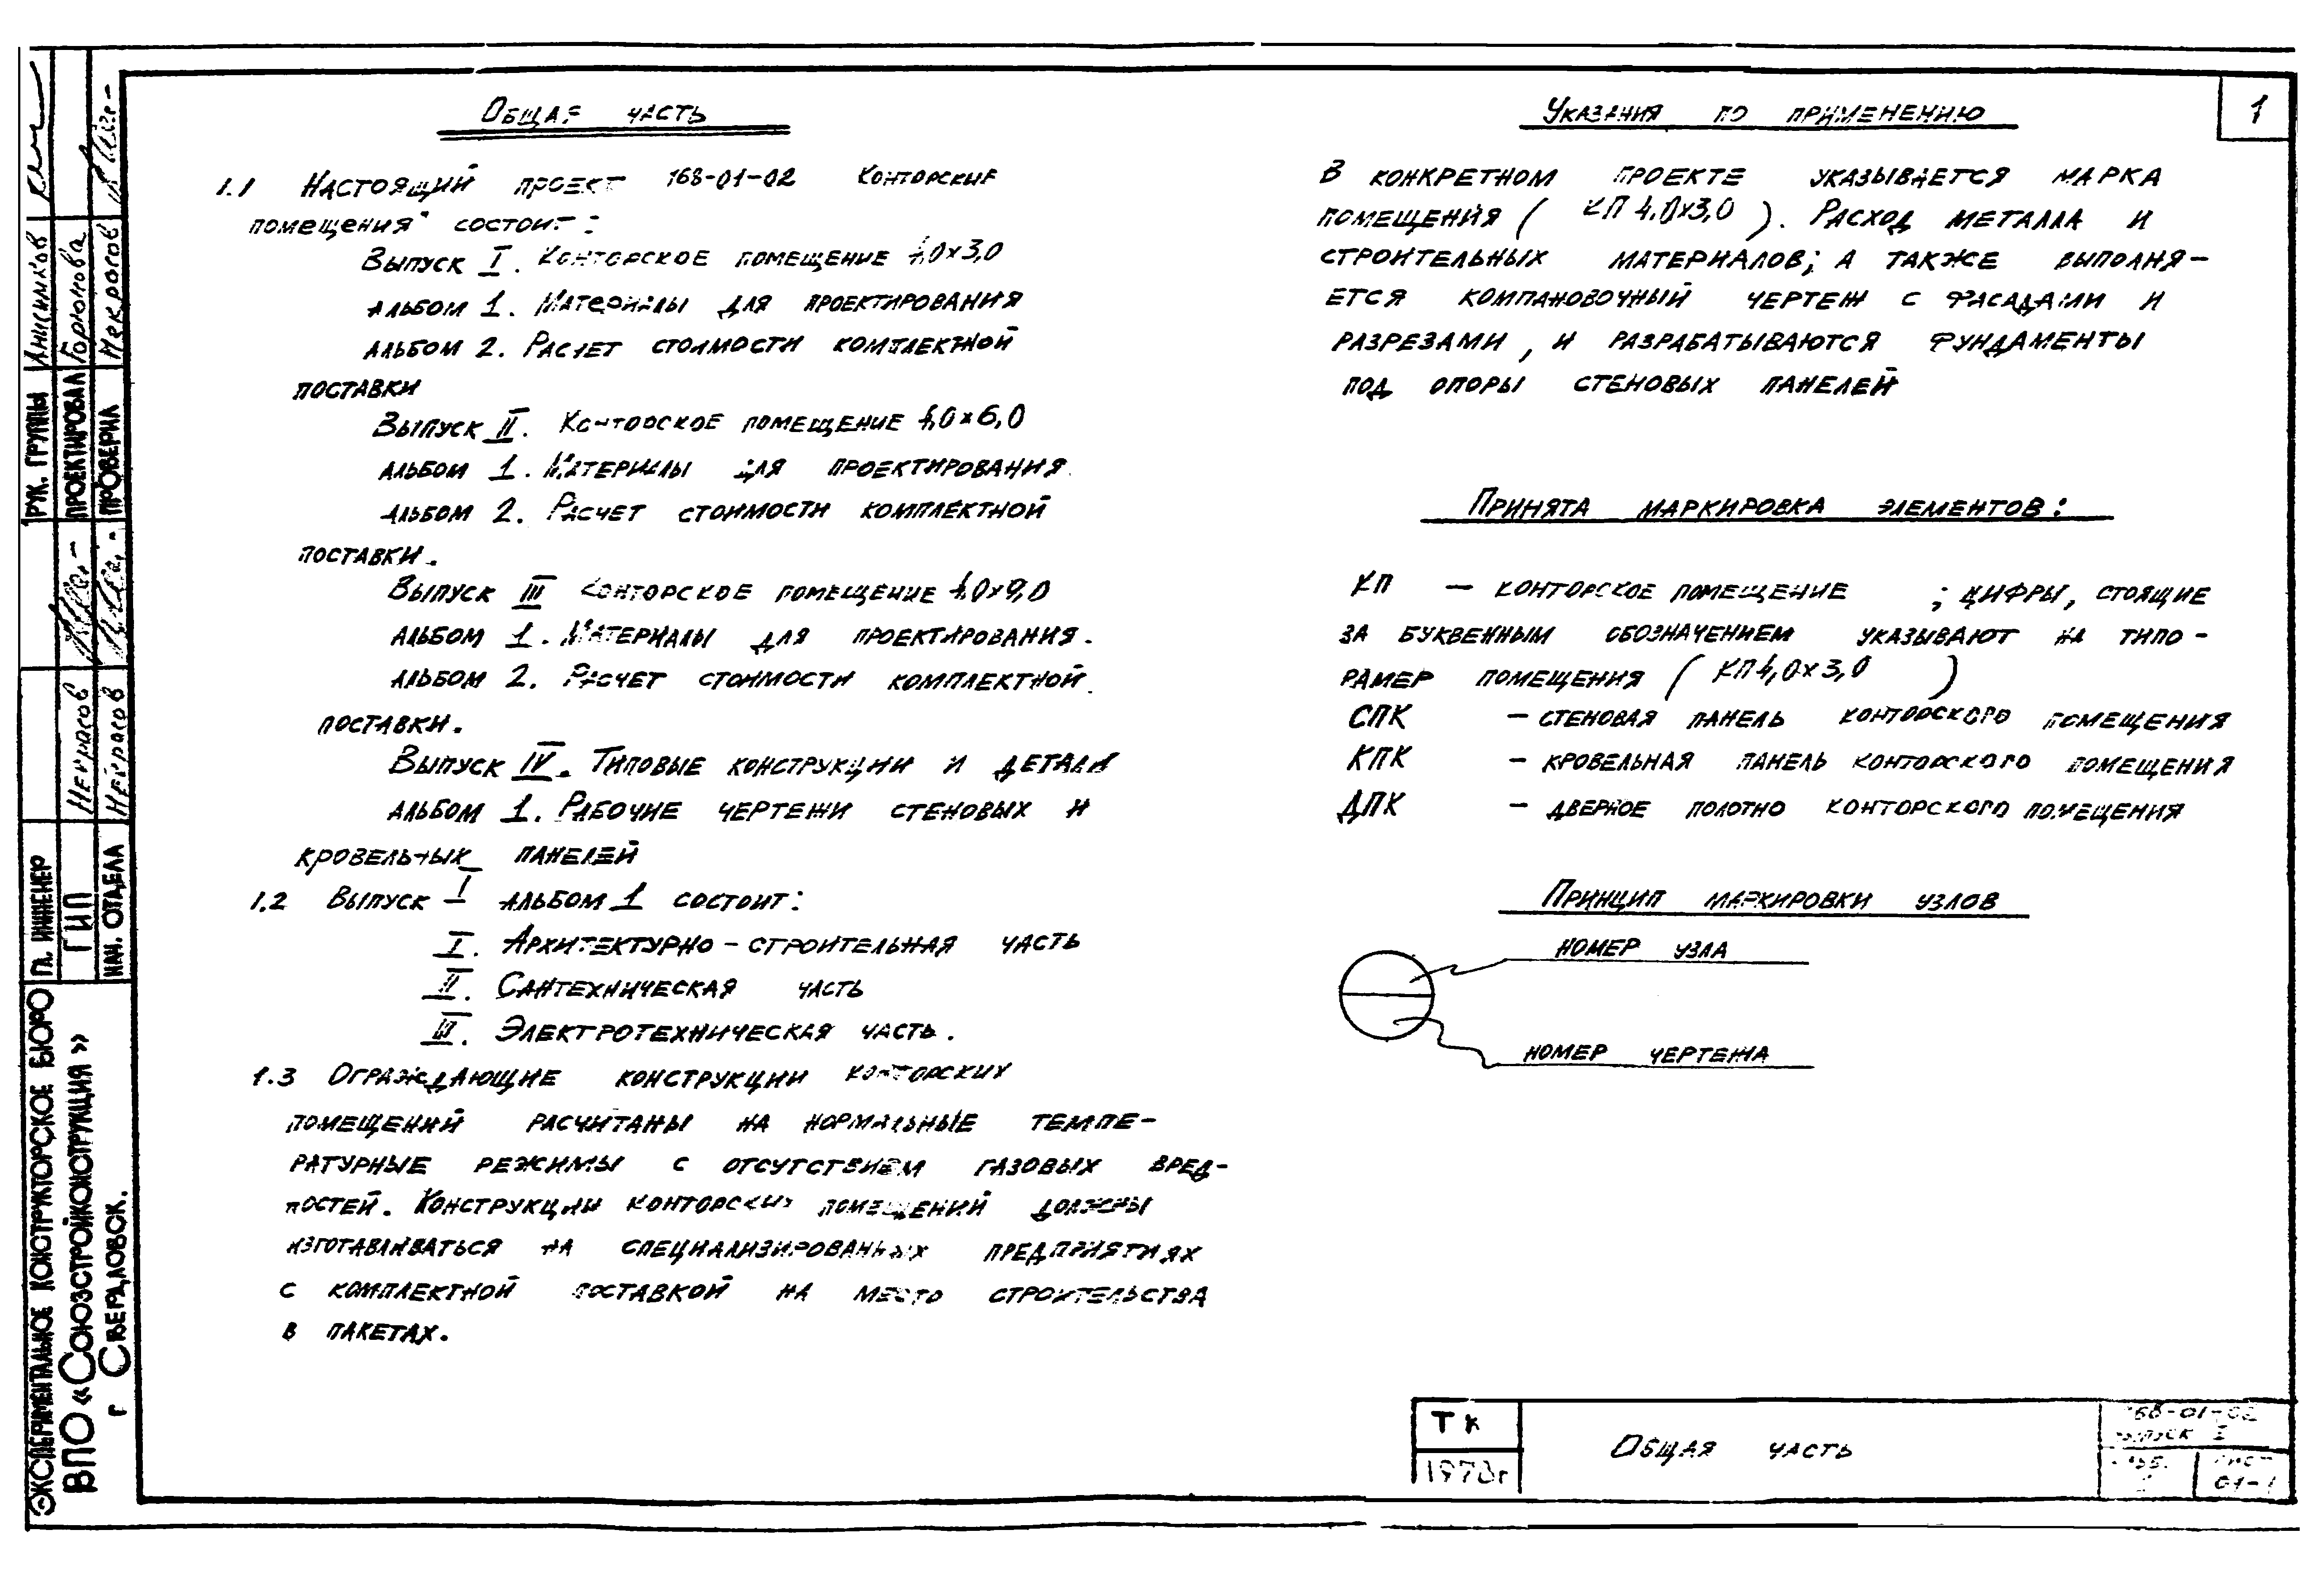 Общая часть
1.1 Настоящий проект 168-01-02 Конторские
помещения" состоит:
Выпуск I. Конторское помещение 4,0х3,0
альбом 1. Материалы для проектирования
альбом 2. Расчет стоимости комплектной
поставки
Выпуск II. Конторское помещение 4,0х6,0
альбом 1. Материалы для проектирования.
альбом 2. Расчет стоимости комплектной
поставки.
Выпуск III Конторское помещение 4,0х9,0
альбом 1. Материалы для проектирования.
альбом 2. Расчет стоимости комплектной
поставки.
Выпуск IV. Типовые конструкции и детали
альбом 1. Рабочие чертежи стеновых и
кровельных панелей
1.2 Выпуск I альбом 1 состоит:
I. Архитектурно-строительная часть
II. Сантехническая часть
III. Электротехническая часть.
1.3 Ограждающие конструкции конторских
помещений расчитаны на нормальные темпе-
ратурные режимы с отсутствием газовых вред-
ностей. Конструкции конторских помещений должны
изготавливаться на специализированных предприятиях
с комплектной поставкой на место строительства
в пакетах.
Указания по применению
1
В конкретном проекте указывается марка
помещения (КП 4,0х3,0). Расход металла и
строительных материалов; а также выполня-
ется компановочный чертеж с фасадами и
разрезами, и разрабатываются фундаменты
под опоры стеновых панелей
Принята маркировка элементов:
КП — конторское помещение ; цифры, стоящие
за буквенным обозначением указывают на типо-
рамер помещения (КП 4,0х3,0)
СПК — стеновая панель конторского помещения
КПК — кровельная панель конторского помещения
ДПК — дверное полотно конторского помещения
Принцип маркировки узлов
номер узла
номер чертежа
ТК
Общая часть
168-01-02
выпуск I
лист
01-1
Рук. группы Анисимков
Проектировал Горюнова
Проверил Некрасов
Гл. инженер
ГИП Некрасов
Нач. отдела Некрасов
Экспериментальное конструкторское бюро
ВПО «Союзстройконструкция»
г Свердловск.